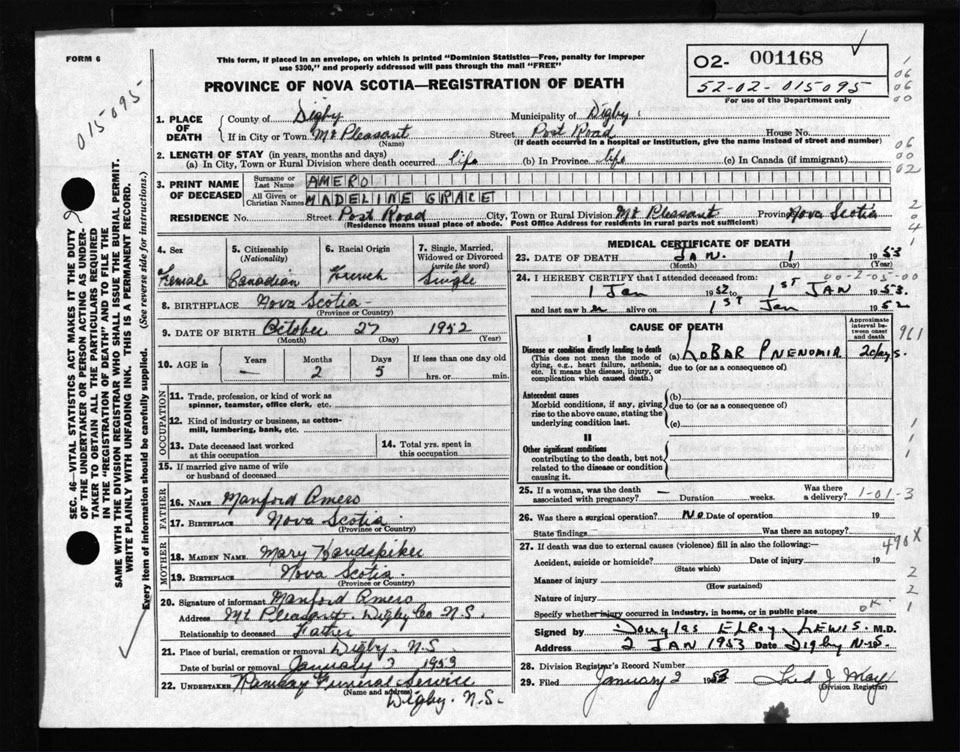 FORM 6
This form, if placed in an envelope, on which is printed "Dominion Statistics—Free, penalty for improper
use $300," and properly addressed will pass through the mail "FREE"
O2- 001168
52-02-015095
For use of the Department only
PROVINCE OF NOVA SCOTIA—REGISTRATION OF DEATH
015095
1. PLACE OF DEATH County of Digby Municipality of Digby
If in City or Town Mt Pleasant Street Post Road House No.
(Name) (If death occurred in a hospital or institution, give the name instead of street and number)
2. LENGTH OF STAY (in years, months and days)
(a) In City, Town or Rural Division where death occurred life (b) In Province life (c) In Canada (if immigrant)
3. PRINT NAME OF DECEASED
Surname or Last Name AMERO
All Given or Christian Names MADELINE GRACE
RESIDENCE No. Street Post Road City, Town or Rural Division Mt Pleasant Province Nova Scotia
(Residence means usual place of abode. Post Office Address for residents in rural parts not sufficient)
4. Sex Female
5. Citizenship (Nationality) Canadian
6. Racial Origin French
7. Single, Married, Widowed or Divorced (write the word) Single
8. BIRTHPLACE Nova Scotia
(Province or Country)
9. DATE OF BIRTH October 27 1952
(Month) (Day) (Year)
10. AGE in Years — Months 2 Days 5 If less than one day old hrs. or min.
OCCUPATION
11. Trade, profession, or kind of work as spinner, teamster, office clerk, etc.
12. Kind of industry or business, as cotton-mill, lumbering, bank, etc.
13. Date deceased last worked at this occupation
14. Total yrs. spent in this occupation
15. If married give name of wife or husband of deceased
FATHER
16. NAME Manford Amero
17. BIRTHPLACE Nova Scotia
(Province or Country)
MOTHER
18. MAIDEN NAME Mary Handspiker
19. BIRTHPLACE Nova Scotia.
(Province or Country)
20. Signature of informant Manford Amero
Address Mt Pleasant. Digby Co N.S.
Relationship to deceased Father
21. Place of burial, cremation or removal Digby. N.S.
Date of burial or removal January 1953
22. UNDERTAKER Ramsay Funeral Service
(Name and address)
Digby. N.S.
MEDICAL CERTIFICATE OF DEATH
23. DATE OF DEATH JAN. 1 1953
(Month) (Day) (Year)
24. I HEREBY CERTIFY that I attended deceased from:
00-2-05-00
1 Jan 1952 to 1ST JAN 1953.
and last saw h alive on 1ST Jan 1952
CAUSE OF DEATH
Approximate interval between onset and death
961
I
Disease or condition directly leading to death
(This does not mean the mode of dying, e.g., heart failure, asthenia, etc. It means the disease, injury, or complication which caused death.)
(a) LOBAR PNENOMIA 2 days.
due to (or as a consequence of)
Antecedent causes
Morbid conditions, if any, giving rise to the above cause, stating the underlying condition last.
(b)
due to (or as a consequence of)
(c)
II
Other significant conditions
contributing to the death, but not related to the disease or condition causing it.
25. If a woman, was the death associated with pregnancy? — Duration weeks. Was there a delivery? 1-01-3
26. Was there a surgical operation? No Date of operation 19
State findings Was there an autopsy?
490X
27. If death was due to external causes (violence) fill in also the following:—
Accident, suicide or homicide? Date of injury 19
(State which)
Manner of injury
(How sustained)
Nature of injury
Specify whether injury occurred in industry, in home, or in public place
OK
Signed by Douglas ELROY LEWIS. M.D.
Address 2 JAN 1953 Date Digby N.S.
28. Division Registrar's Record Number
29. Filed January 2 1953 J May
(Division Registrar)
SEC. 46—VITAL STATISTICS ACT MAKES IT THE DUTY
OF THE UNDERTAKER OR PERSON ACTING AS UNDER-
TAKER TO OBTAIN ALL THE PARTICULARS REQUIRED
IN THE "REGISTRATION OF DEATH" AND TO FILE THE
SAME WITH THE DIVISION REGISTRAR WHO SHALL ISSUE THE BURIAL PERMIT.
WRITE PLAINLY WITH UNFADING INK. THIS IS A PERMANENT RECORD.
Every item of information should be carefully supplied. (See reverse side for instructions.)